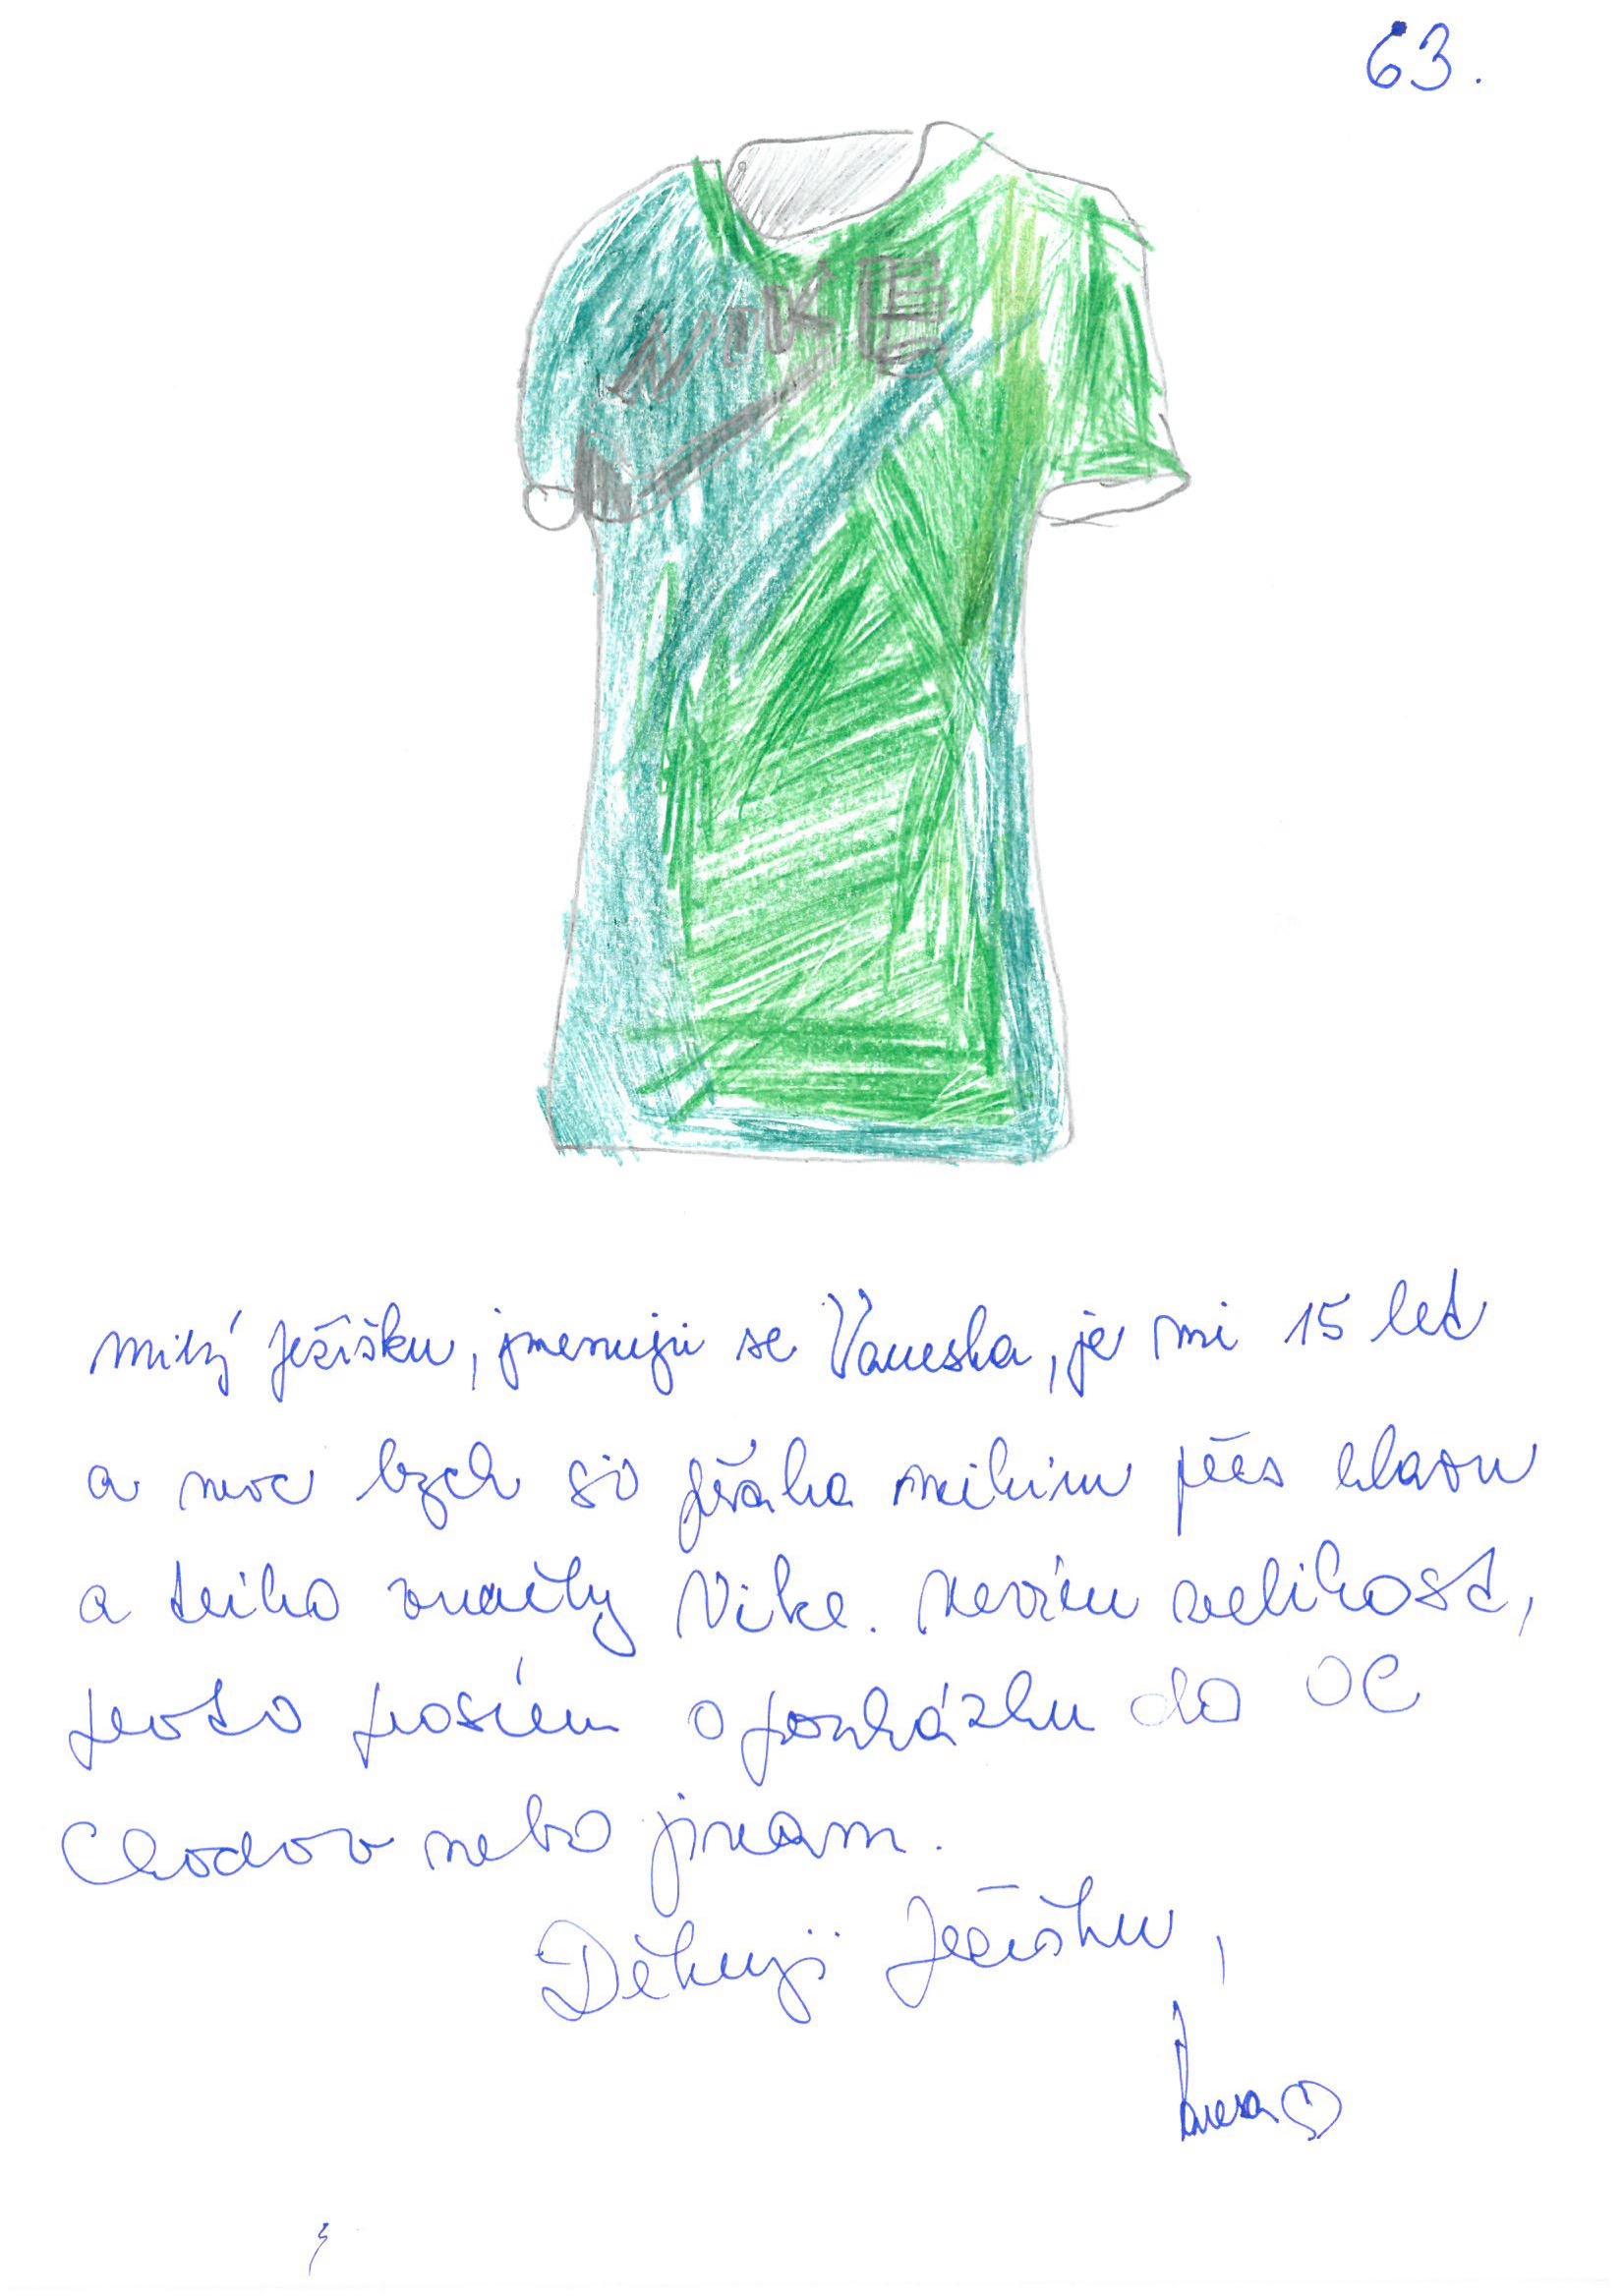 63.
NIKE
Milý Ježíšku, jmenuji se Vaneska, je mi 15 let
a moc bych si přála mikinu přes hlavu
a triko značky Nike. Nevím velikost,
proto prosím o poukázku do OC
Chodov nebo jinam.
Děkuji Ježíšku,
Vanesa